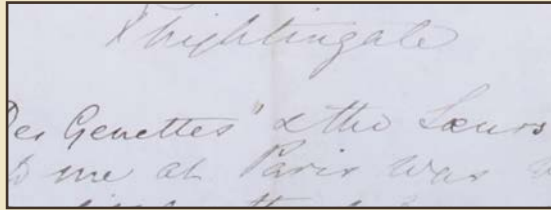 Nightingale
Des Genettes" & the Sœurs
to me at Paris was